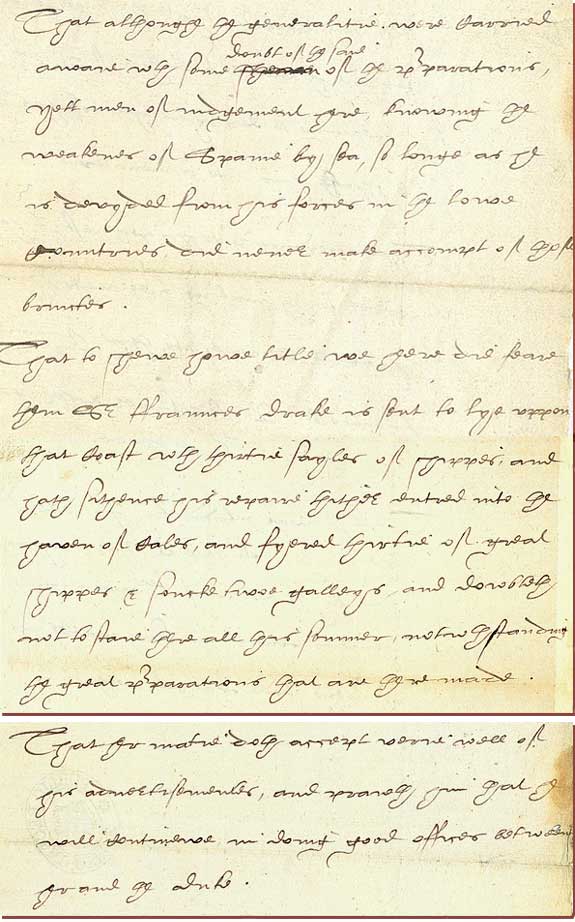 That althoughe the generalitie were carried
doubt of the said
awaie wth some of the pparations,
yett men of iudgement here, knowing the
weakenes of Spaine by sea, so longe as he
is devyded from his forces in the lowe
Countries did never make accompt of those
bructes .
That to shewe howe litle we here did feare
him Sr ffraunces Drake is sent to lye uppon
that Coast wth thirtie sayles of shippes, and
hath sithence his repaire thither entred into the
haven of Cales, and fyered thirtie of great
shippes & soncke twoe galleys, and dowbteth
not to staie there all this sommer, notwthstanding
the great pparations that are there made .
That her matie doth accept verie well of
his advertisementes, and praieth him that he
will continewe in doing good offices betweene
her and the duke .